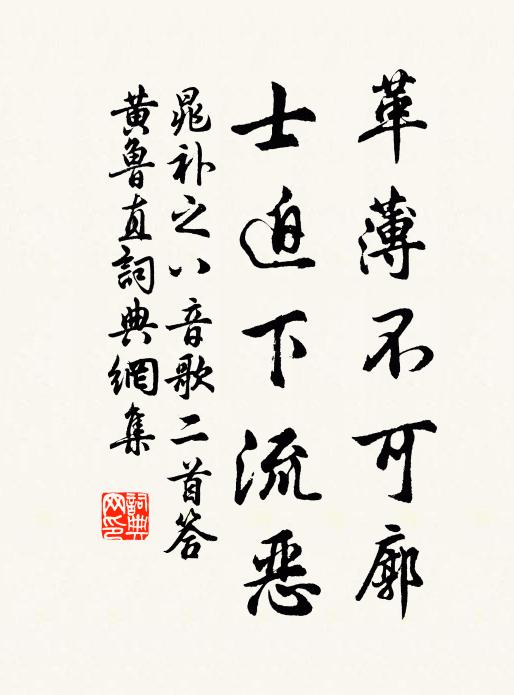 革薄不可廓
士迫下流惡
晁补之八音歌二首答
黃魯直詞典網集
詞典
网印